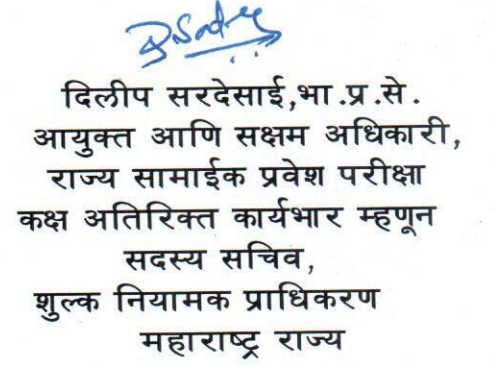 दिलीप सरदेसाई,भा.प्र.से.
आयुक्त आणि सक्षम अधिकारी,
राज्य सामाईक प्रवेश परीक्षा
कक्ष अतिरिक्त कार्यभार म्हणून
सदस्य सचिव,
शुल्क नियामक प्राधिकरण
महाराष्ट्र राज्य